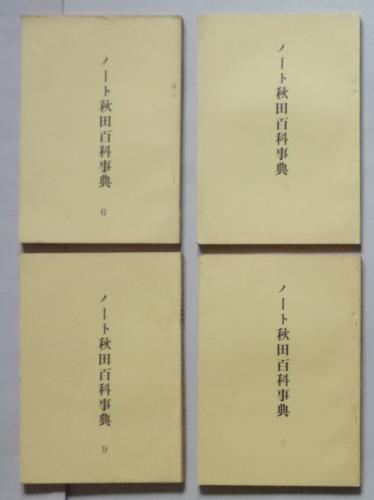 ノート秋田百科事典
6
ノート秋田百科事典
ノート秋田百科事典
9
ノート秋田百科事典
8